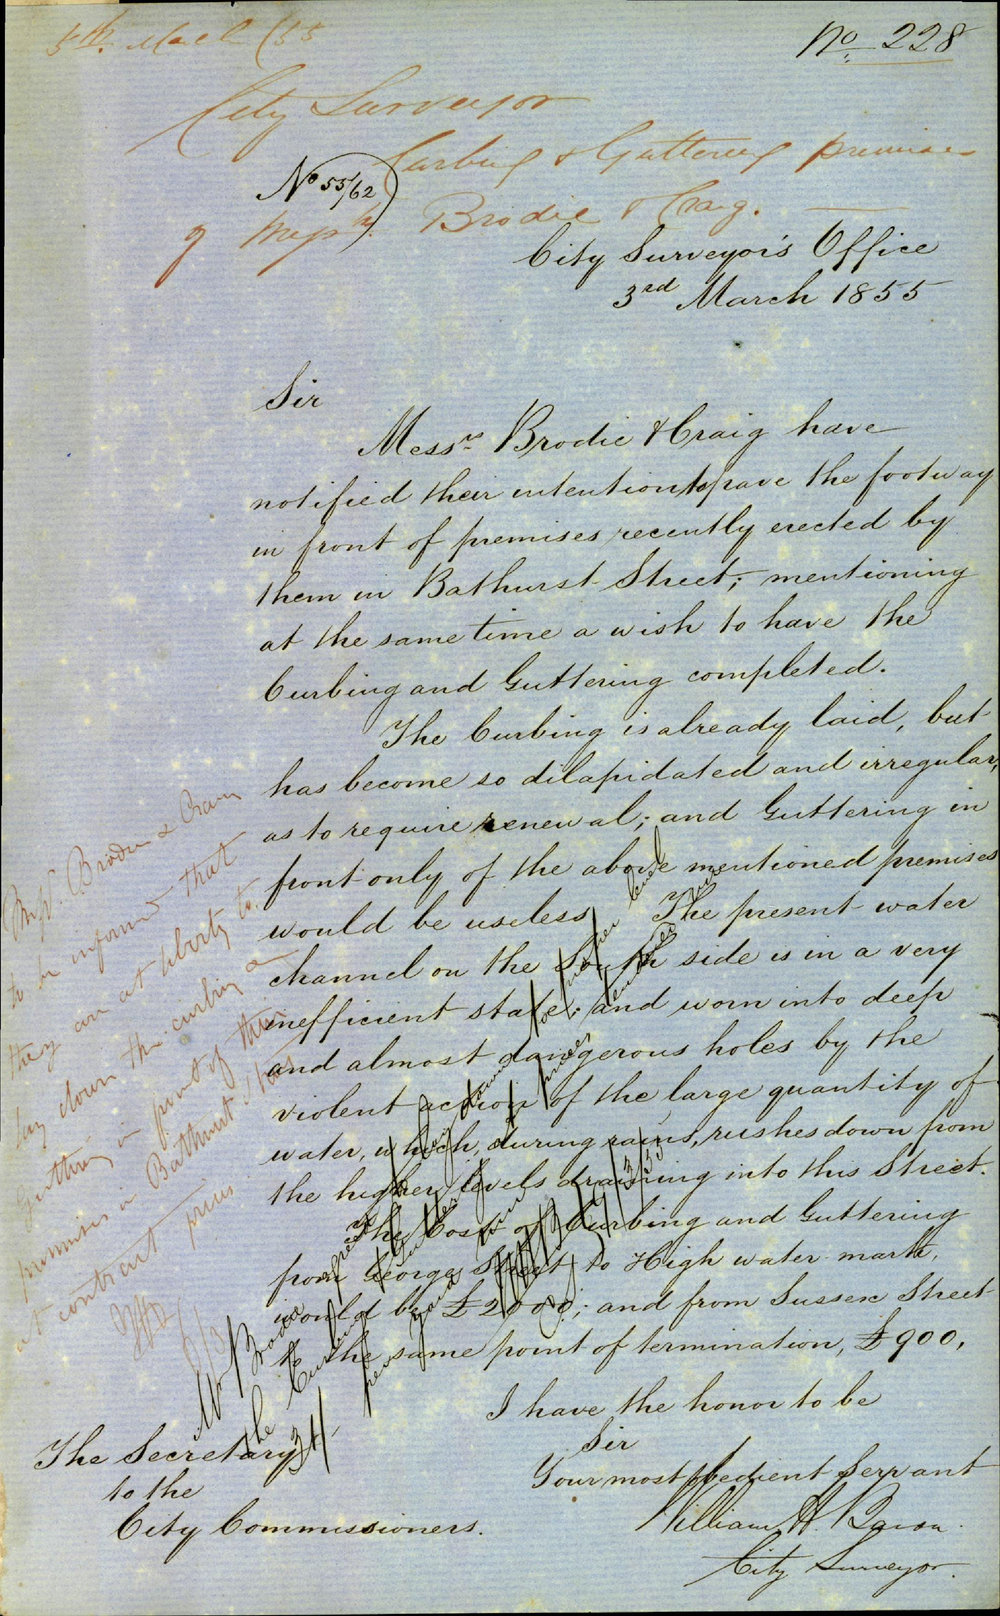 5th March /55
No 228
City Surveyor
Curbing & Guttering premises
No 55/62
of Messrs. Brodie & Craig.
City Surveyor's Office
3rd March 1855
Sir
Messrs Brodie & Craig have
notified their intention to pave the footway
in front of premises recently erected by
them in Bathurst Street; mentioning
at the same time a wish to have the
Curbing and Guttering completed.
The Curbing is already laid, but
has become so dilapidated and irregular,
as to require renewal; and Guttering in
front only of the above mentioned premises
would be useless. The present water
channel on the South side is in a very
inefficient state; and worn into deep
and almost dangerous holes by the
violent action of the large quantity of
water, which, during rains, rushes down from
the higher levels draining into this Street.
The Cost of Curbing and Guttering
from George Street to High water mark,
would be £2000; and from Sussex Street
to the same point of termination, £900,
I have the honor to be
Sir
Your most obedient Servant
William H. Baron
City Surveyor.
The Secretary
to the
City Commissioners.
Messrs. Brodie & Craig
to be informed that
they are at liberty to
lay down the curbing &
Guttering in front of their
premises in Bathurst Street
at contract prices
Mr Brodie
the Curbing